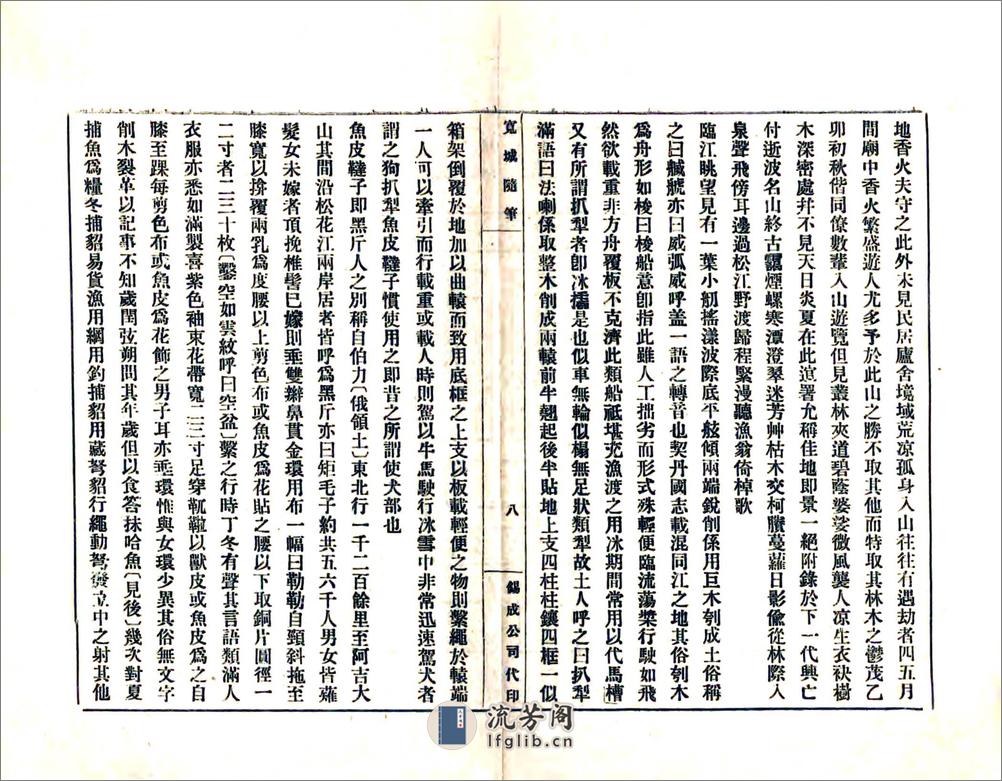 地香火夫守之此外未見民居廬舍境域荒凉孤身入山往往有遇劫者四五月
間廟中香火繁盛遊人尤多予於此山之勝不取其他而特取其林木之鬱茂乙
卯初秋偕同僚數輩入山遊覽但見叢林夾道碧蔭婆娑微風襲人凉生衣袂樹
木深密處幷不見天日炎夏在此避署允稱佳地即景一絕附錄於下一代興亡
付逝波名山終古靄煙螺寒潭澄翠迷芳艸枯木交柯賸蔓蘿日影偸從林際入
泉聲飛傍耳邊過松江野渡歸程緊漫聽漁翁倚棹歌
臨江眺望見有一葉小舠搖漾波際底平舷傾兩端銳削係用巨木刳成土俗稱
之曰艤艤亦曰威弧威呼盖一語之轉音也契丹國志載混同江之地其俗刳木
爲舟形如梭曰梭船意卽指此雖人工拙劣而形式殊輕便臨流蕩槳行駛如飛
然欲載重非方舟覆板不克濟此類船祗堪充漁渡之用冰期間常用以代馬槽
又有所謂扒犁者卽冰擂是也似車無輪似榻無足狀類犁故土人呼之曰扒犁
滿語曰法喇係取整木削成兩轅前半翹起後半貼地上支四柱柱鑲四框一似
寬城隨筆
八
錫成公司代印
箱架倒覆於地加以曲轅而致用底框之上支以板載輕便之物則繫繩於轅端
一人可以牽引而行載重或載人時則駕以牛馬駛行冰雪中非常迅速駕犬者
謂之狗扒犁魚皮韃子慣使用之即昔之所謂使犬部也
魚皮韃子即黑斤人之別稱自伯力〔俄領土〕東北行一千二百餘里至阿吉大
山其間沿松花江兩岸居者皆呼爲黑斤亦曰矩毛子約共五六千人男女皆薙
髮女未嫁者頂挽椎髻已嫁則垂雙辮鼻貫金環用布一幅曰勒勒自頸斜拖至
膝寬以揜覆兩乳爲度腰以上剪色布或魚皮爲花貼之腰以下取銅片圓徑一
二寸者二三十枚〔鑿空如雲紋呼曰空盆〕繫之行時丁冬有聲其言語類滿人
衣服亦悉如滿製喜紫色袖束花帶寬二三寸足穿靰鞡以獸皮或魚皮爲之自
膝至踝每剪色布或魚皮爲花飾之男子耳亦垂環惟與女環少異其俗無文字
削木裂革以記事不知歲閏弦朔問其年歲但以食答抹哈魚〔見後〕幾次對夏
捕魚爲糧冬捕貂易貨漁用網用釣捕貂用藏弩貂行繩動弩發立中之射其他
流芳阁
lfglib.cn